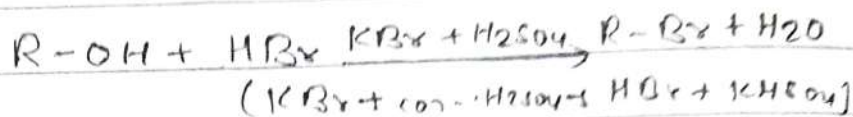 R-OH + HBr KBr + H2SO4 → R-Br + H2O
(KBr + con..H2SO4 → HBr + KHSO4]